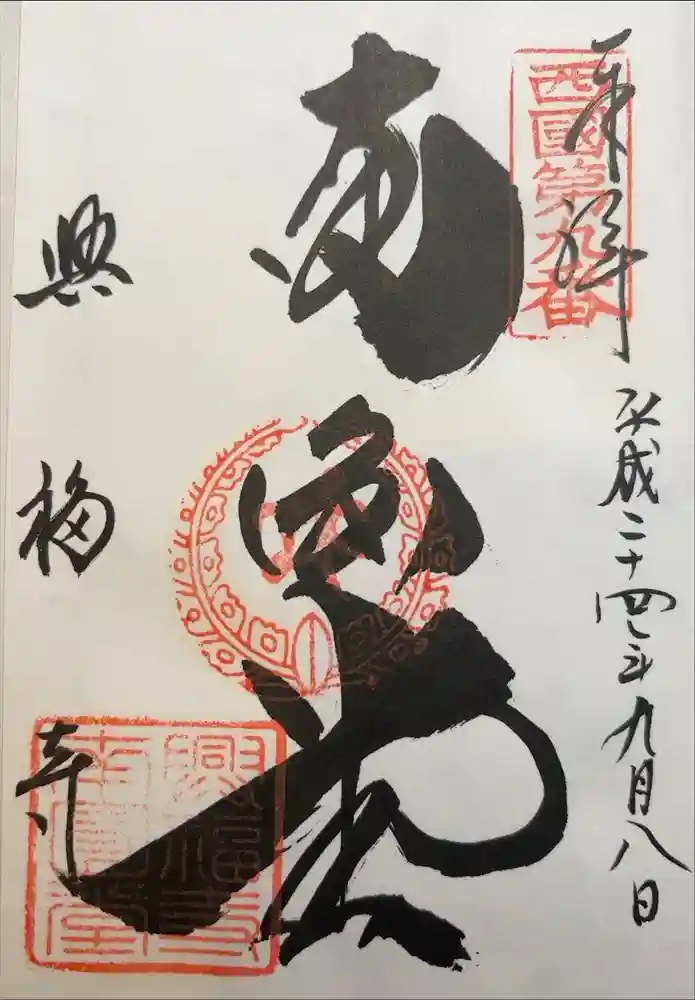 奉拝
西國第九番
平成二十四年九月八日
南圓堂
興福寺
興福寺
南圓堂